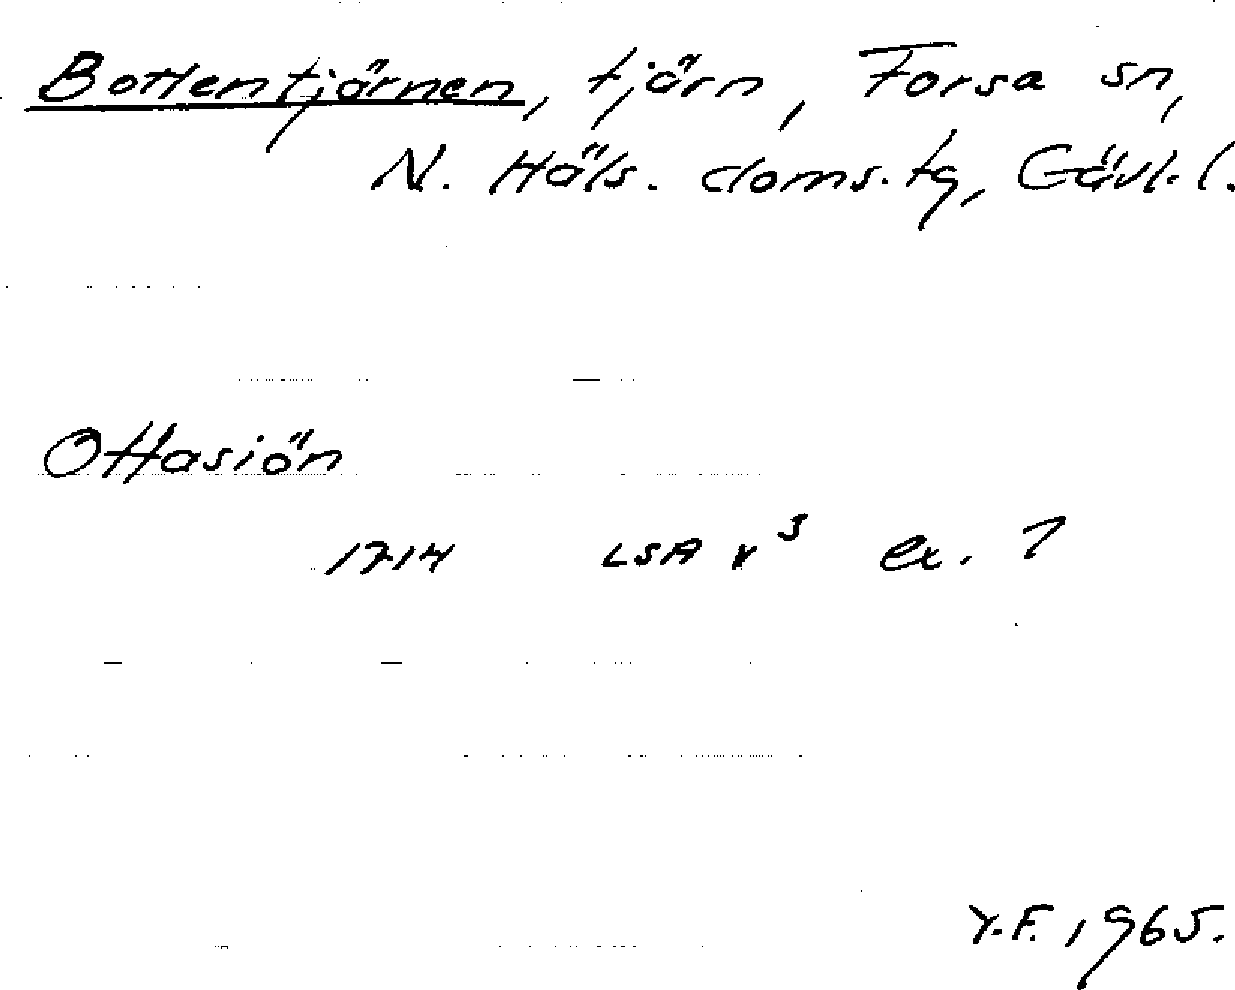 Bottentjärnen, tjärn, Forsa sn,
N. Häls. doms. tg, Gävl. l.
Ottasiön
1714 LSA v³ ex. ?
Y.F. 1965.